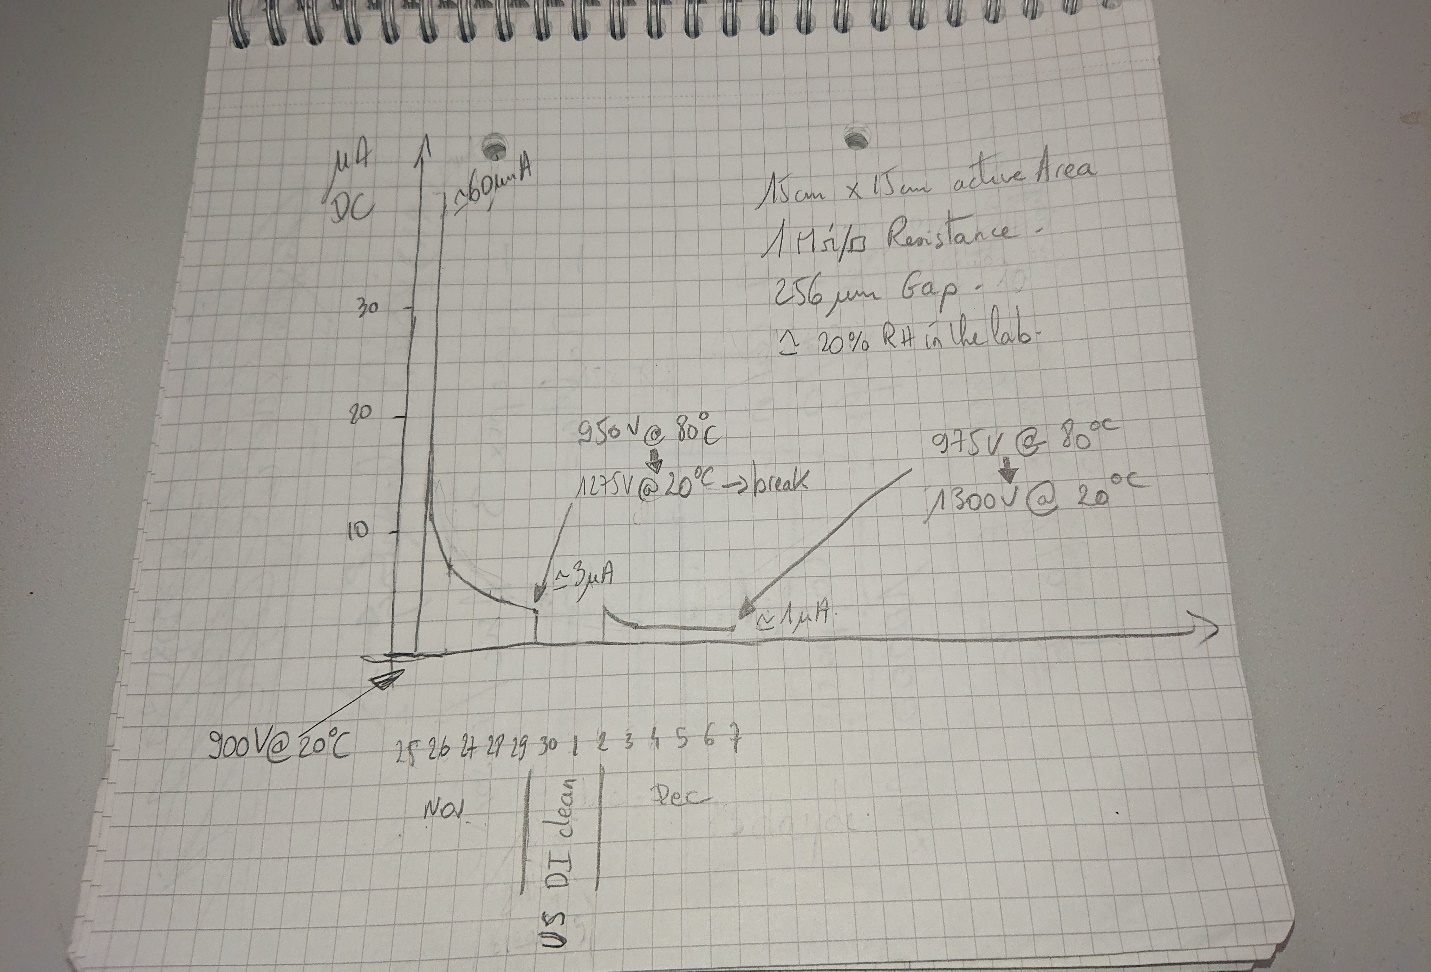 µA
DC
≃60µmA
30
20
10
15cm x 15cm active Area
1 MΩ/□ Resistance -
256 µm Gap -
≃ 20% RH in the lab -
950V @ 80°C
1275V @ 20°C → break
975V @ 80°C
1300V @ 20°C
≃ 3µA
≃ 1µA.
900V @ 20°C
25 26 27 28 29 30 1 2 3 4 5 6 7
Nov
Dec
US DI clean